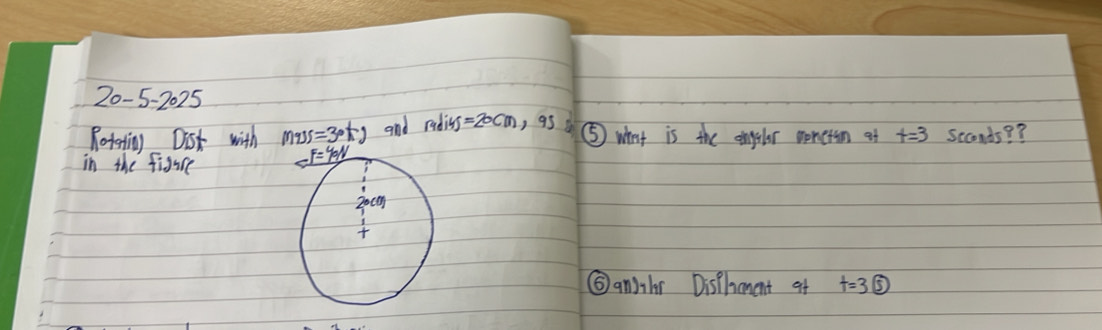 20-5-2025
Rotating Disk with mass=30kg and radius=20cm, as
in the figure
F=40N
20cm
+
⑤ what is the angular momentum at t=3 seconds??
⑥ angular Displacment at t=3Ⓢ